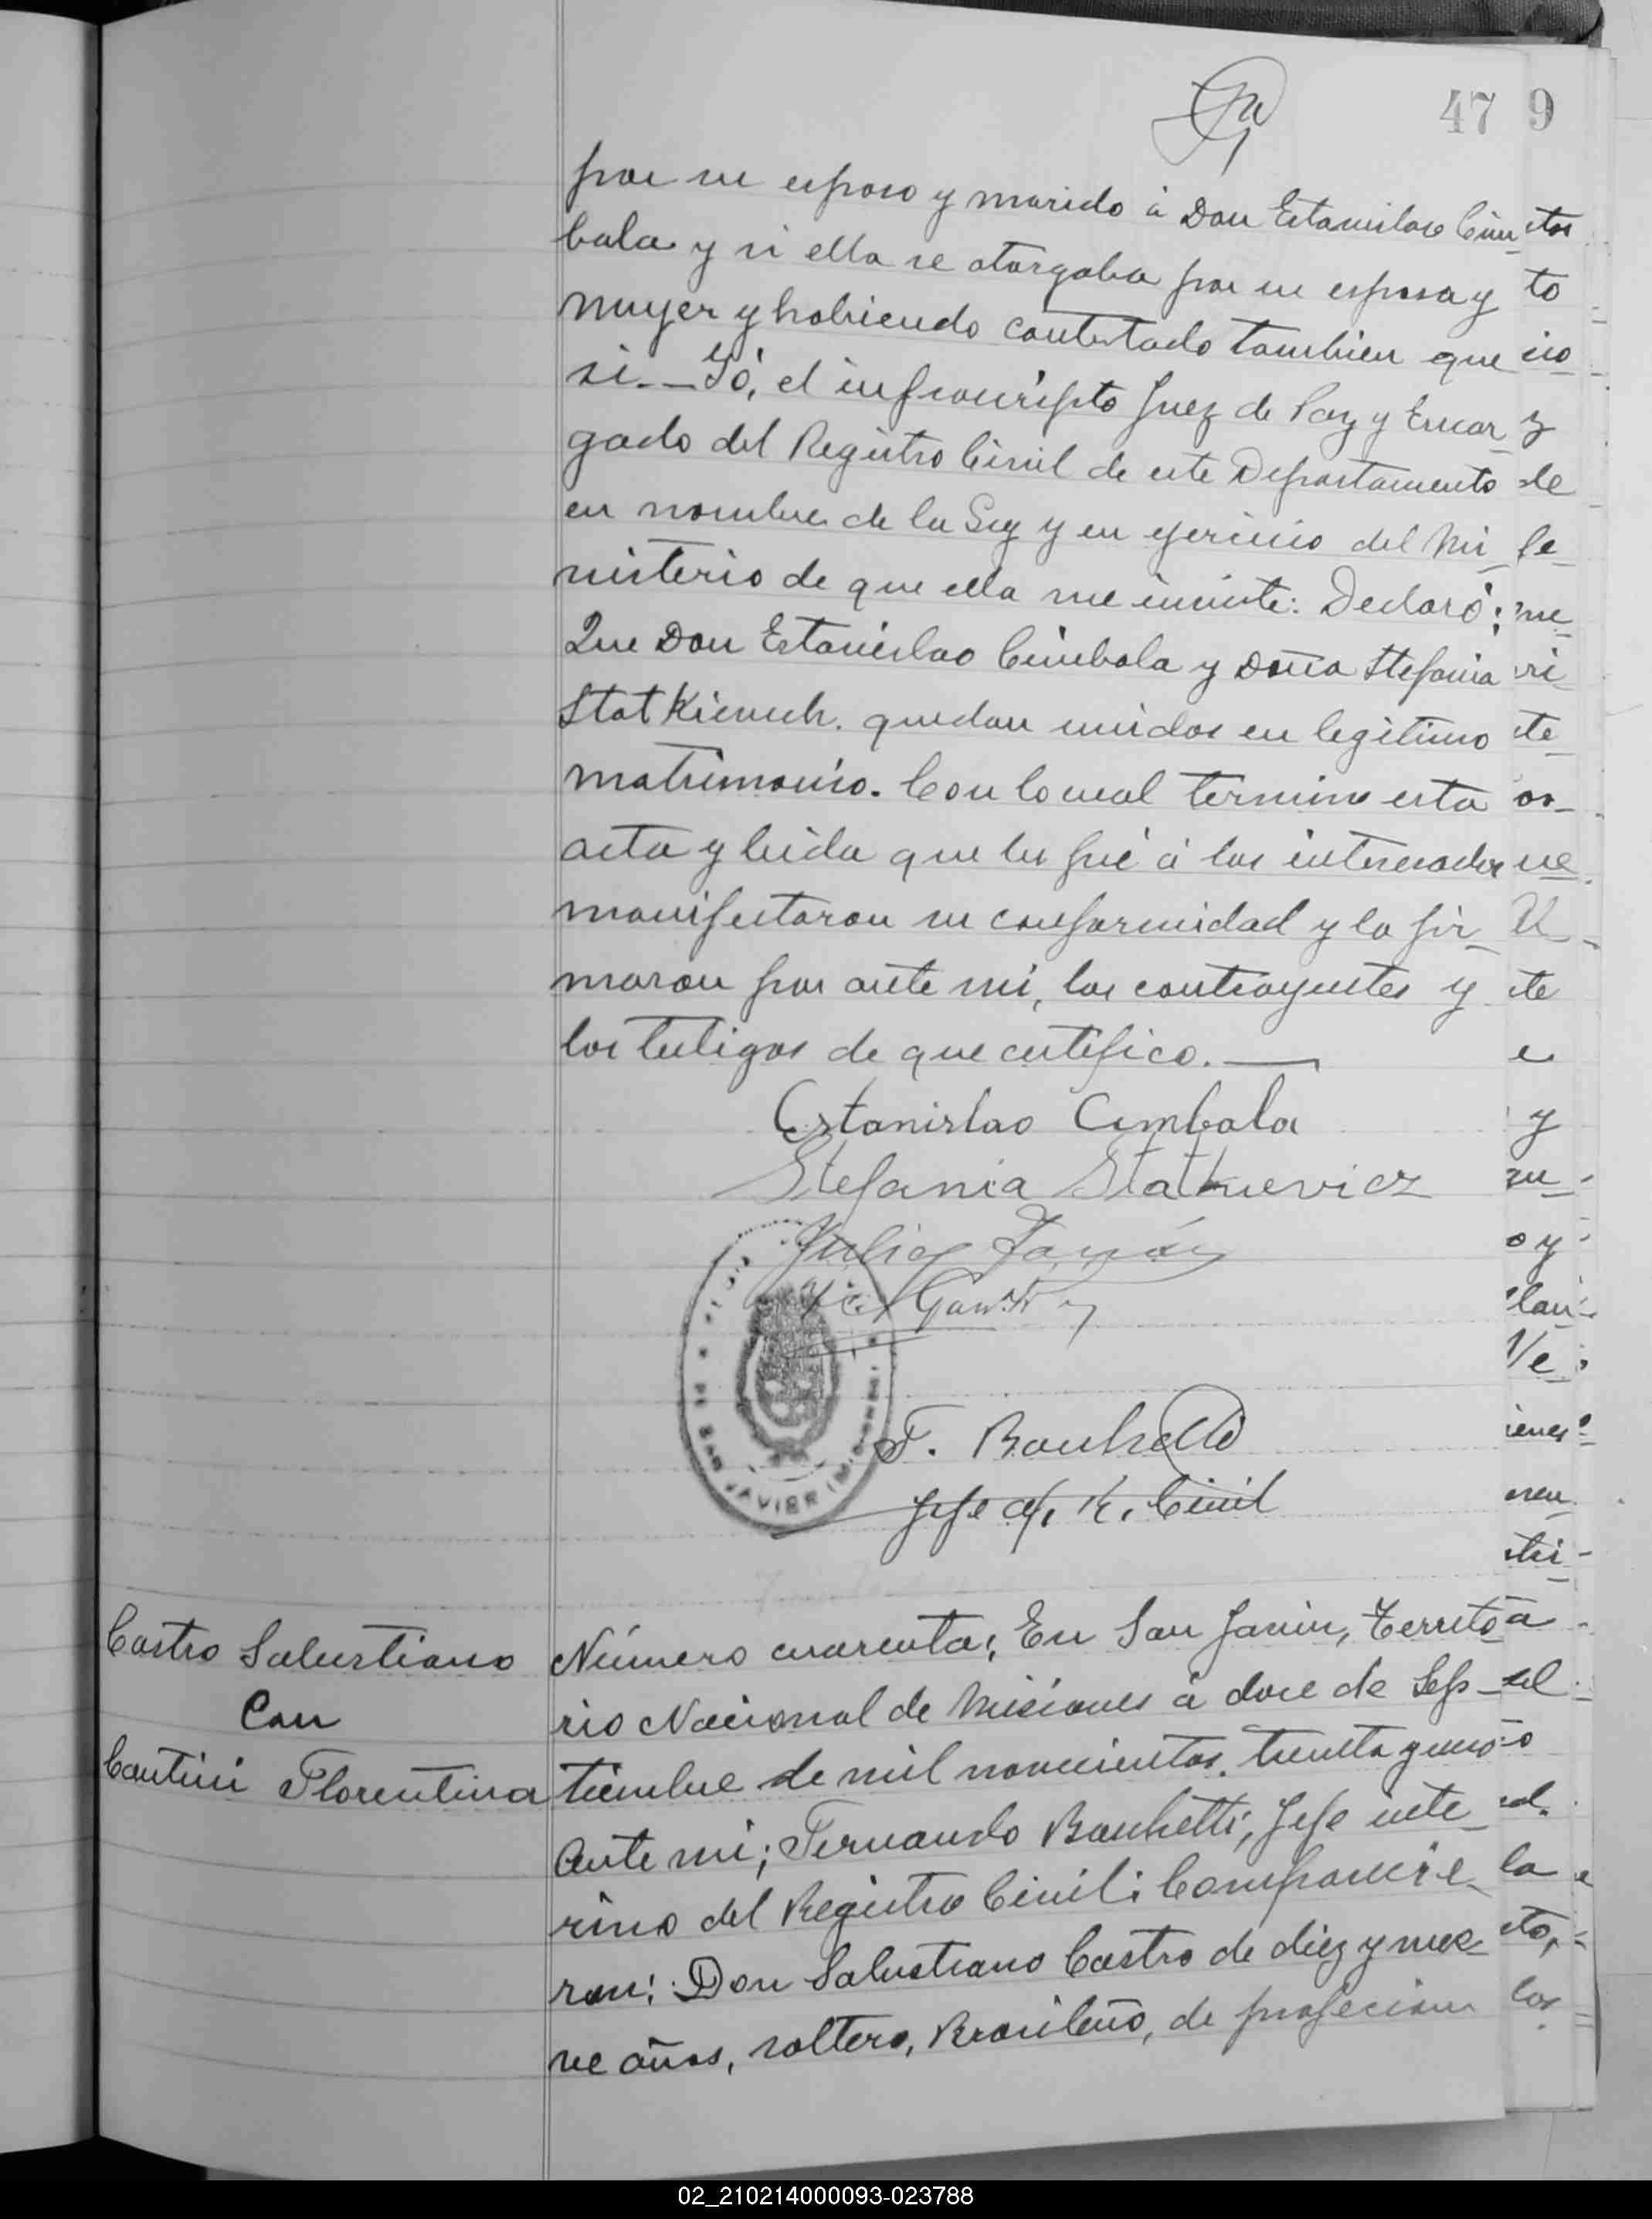 47 9
por su esposo y marido á Don Estanislao Cim
bala y si ella se otorgaba por su esposa y
muger y habiendo contestado tambien que
si.— Yó, el infrascripto Juez de Paz y Encar
gado del Registro Civil de este Departamento
en nombre de la Ley y en ejercicio del Mi
nisterio de que ella me inviste: Declaró;
Que Don Estanislao Cimbala y Doña Stefania
Statkievich. quedan unidos en legitimo
matrimonio. Con lo cual termino esta
acta y leida que les fué á los interesados
manifestaron su conformidad y la fir
maron por ante mi, los contrayentes y
los testigos de que certifico.—
Estanislao Cimbala
Stefania Statkievicz
Julio
F. Banchetti
Jefe del R. Civil
DE SAN JAVIER (MISIONES)
Castro Salustiano
Con
Cantini Florentina
Número cuarenta; En San Javier, Territo
rio Nacional de Misiones á doce de Sep
tiembre de mil novecientos treinta y uno
Ante mi; Fernando Banchetti, Jefe inte
rino del Registro Civil: Comparecie
ron: Don Salustiano Castro de diez y nue
ve años, soltero, Brasileño, de profecion
tos
to
cio
y
de
le
me
ri
te
os
ue
te
e
y
su
o y
Ve
ienes
a
el
o
la
to,
los
02_210214000093-023788